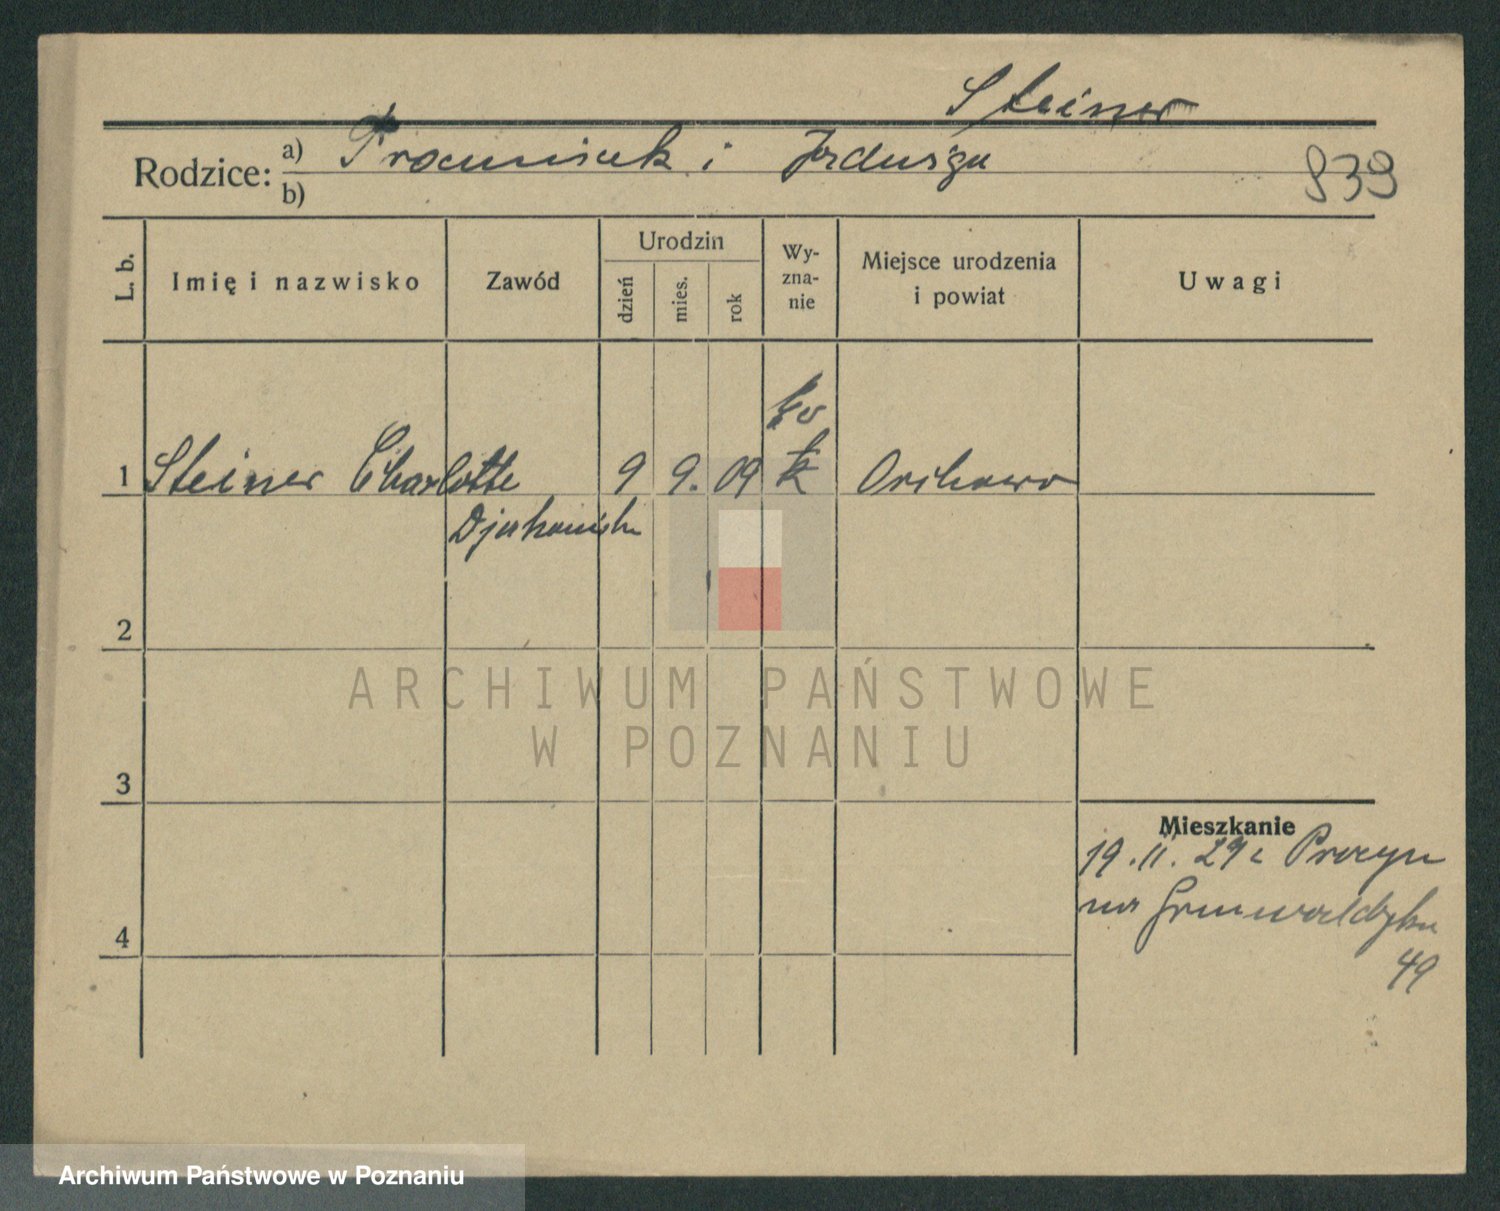 Steiner
Rodzice: a) Franciszek i Jadwiga
b)
839
L. b. Imię i nazwisko Zawód Urodzin dzień mies. rok Wy-zna-nie Miejsce urodzenia i powiat Uwagi
1 Steiner Charlotte 9 9. 09 k Orchowo
2
3
Mieszkanie
19. II. 29
na Grunwaldzka
49
4
ARCHIWUM PAŃSTWOWE
W POZNANIU
Archiwum Państwowe w Poznaniu